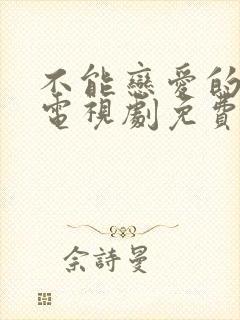 不能戀愛的
電視劇免費
佘詩曼